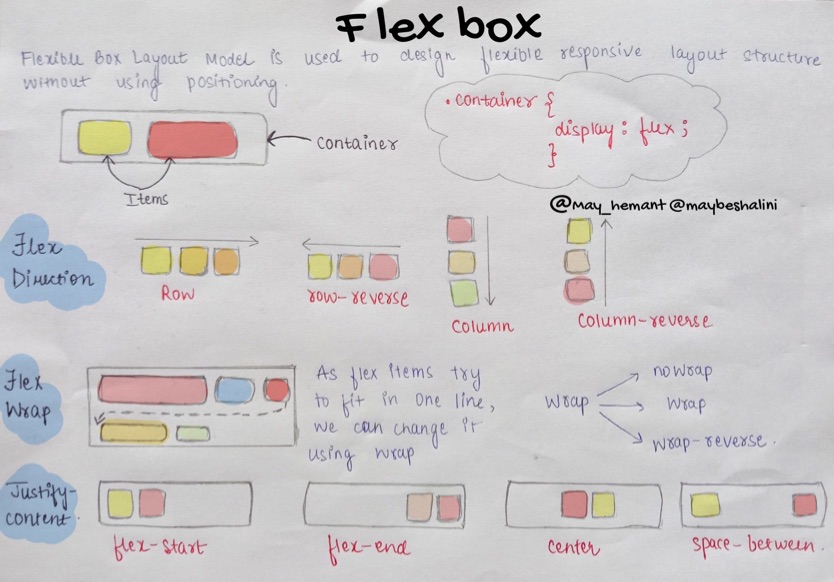 Flex box
Flexible Box Layout Model is used to design flexible responsive layout structure
without using positioning.
.container {
display: flex;
}
container
Items
@May_hemant @maybeshalini
Flex
Direction
Row
row-reverse
column
column-reverse
Flex
Wrap
As flex items try
to fit in one line,
we can change it
using wrap
wrap
nowrap
wrap
wrap-reverse.
Justify-
content.
flex-start
flex-end
center
space-between.